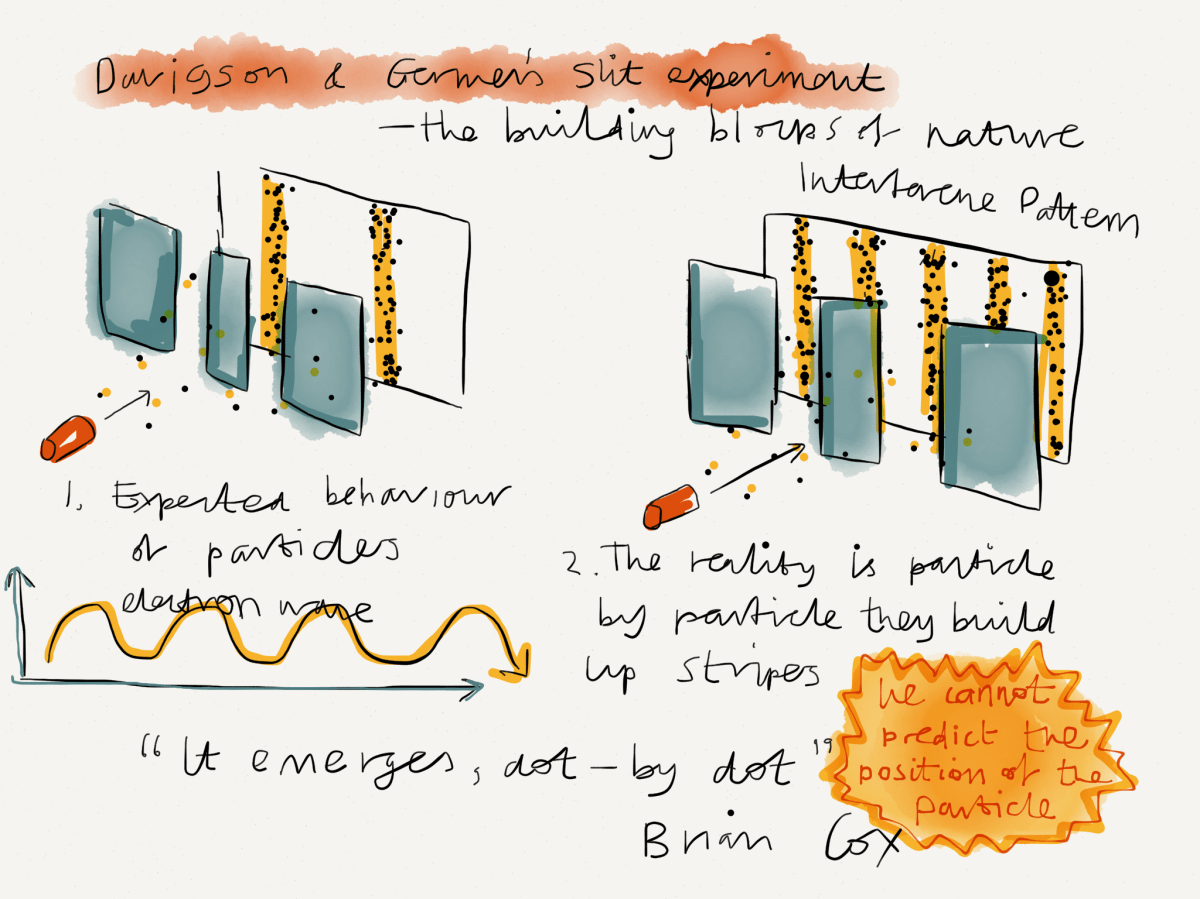 Davigson & Germer's Slit experiment
– the building blocks of nature
Interference Pattern
1. Expected behaviour
of particles
electron wave
2. The reality is particle
by particle they build
up stripes
We cannot
predict the
position of the
particle
"It emerges, dot-by dot"
Brian Cox